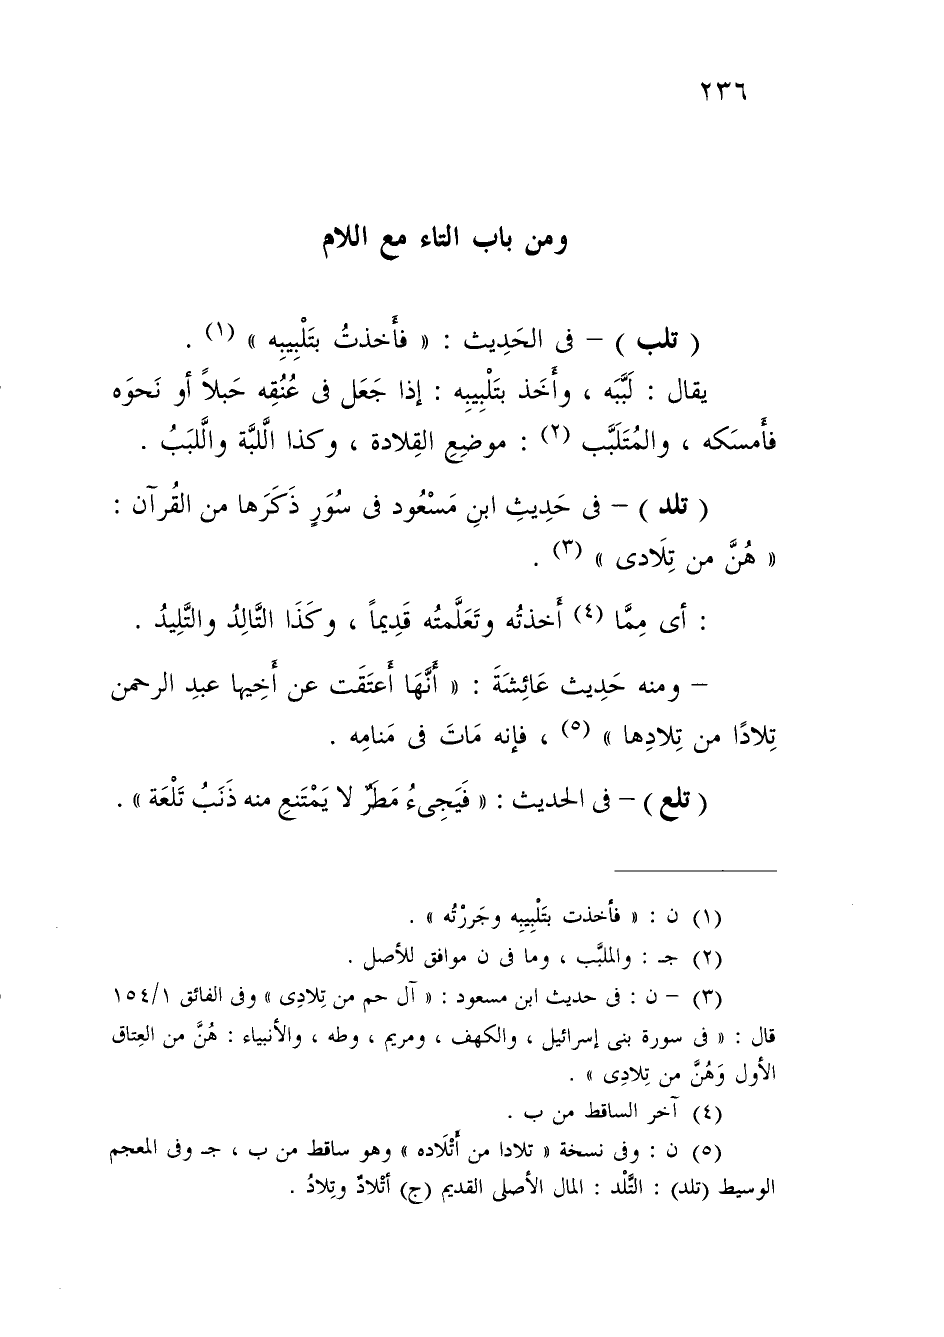 ٢٣٦
ومن باب التاء مع اللام
( تلب ) – فى الحَدِيث : « فأَخذتُ بتَلْبِيبِه » (١) .
يقال : لَبَّبَه ، وأَخَذ بتَلْبِيبِه : إذا جَعَل فى عُنُقِه حَبلاً أو نَحوَه
فأَمسَكه ، والمُتَلَبَّب (٢) : موضِعِ القِلادة ، وكذا الَّلبَّة والَّلبَبُ .
( تلد ) – فى حَدِيثِ ابنِ مَسْعُود فى سُوَرٍ ذَكَرَها من القُرآن :
« هُنَّ من تِلَادى » (٣) .
: أى مِمَّا (٤) أَخذتُه وتَعَلَّمتُه قَدِيماً ، وكَذَا التَّالِدُ والتَّلِيدُ .
– ومنه حَدِيث عَائِشَةَ : « أَنَّهَا أَعتَقَت عن أَخِيها عبدِ الرحمن
تِلادًا من تِلادِها » (٥) ، فإنه مَاتَ فى مَنامِه .
( تلع ) – فى الحديث : « فَيَجِىءُ مَطَرٌ لا يَمْتَنعِ منه ذَنَبُ تَلْعَة » .
(١) ن : « فأخذت بتَلْبِيبِه وجَررْتُه » .
(٢) جـ : والملبَّب ، وما فى ن موافق للأصل .
(٣) – ن : فى حديث ابن مسعود : « آل حم من تِلادِى » وفى الفائق ١٥٤/١
قال : « فى سورة بنى إسرائيل ، والكهف ، ومريم ، وطه ، والأنبياء : هُنَّ من العِتاق
الأول وَهُنَّ من تِلادِى » .
(٤) آخر الساقط من ب .
(٥) ن : وفى نسخة « تلادا من أَتْلَاده » وهو ساقط من ب ، جـ وفى المعجم
الوسيط (تلد) : التَّلْد : المال الأصلى القديم (ج) أتْلادٌ وتِلادُ .